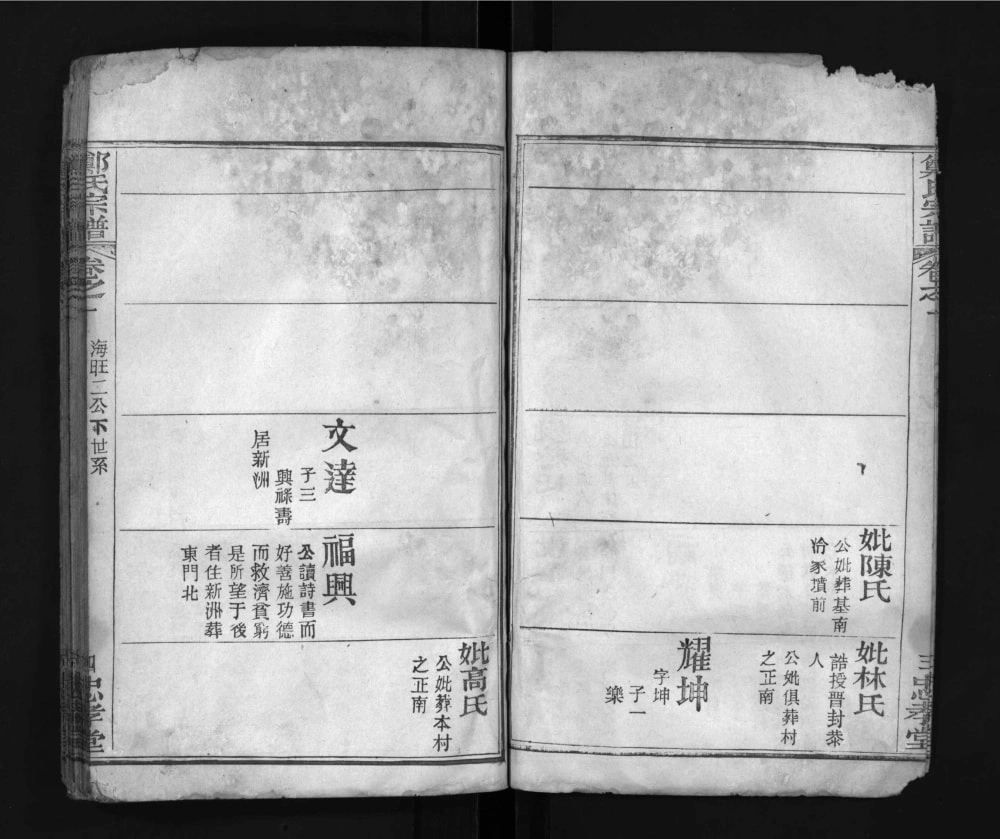 鄭氏宗譜
卷之一
三
忠孝堂
妣陳氏
公妣葬基南
冶冢墳前
妣林氏
誥授晋封恭
人
公妣俱葬村
之正南
耀坤
字坤
子一
樂
妣高氏
公妣葬本村
之正南
文達
子三
興祿壽
居新洲
福興
公讀詩書而
好善施功德
而救濟貧窮
是所望于後
者住新洲葬
東門北
鄭氏宗譜
卷之一
海旺二公下世系
四
忠孝堂